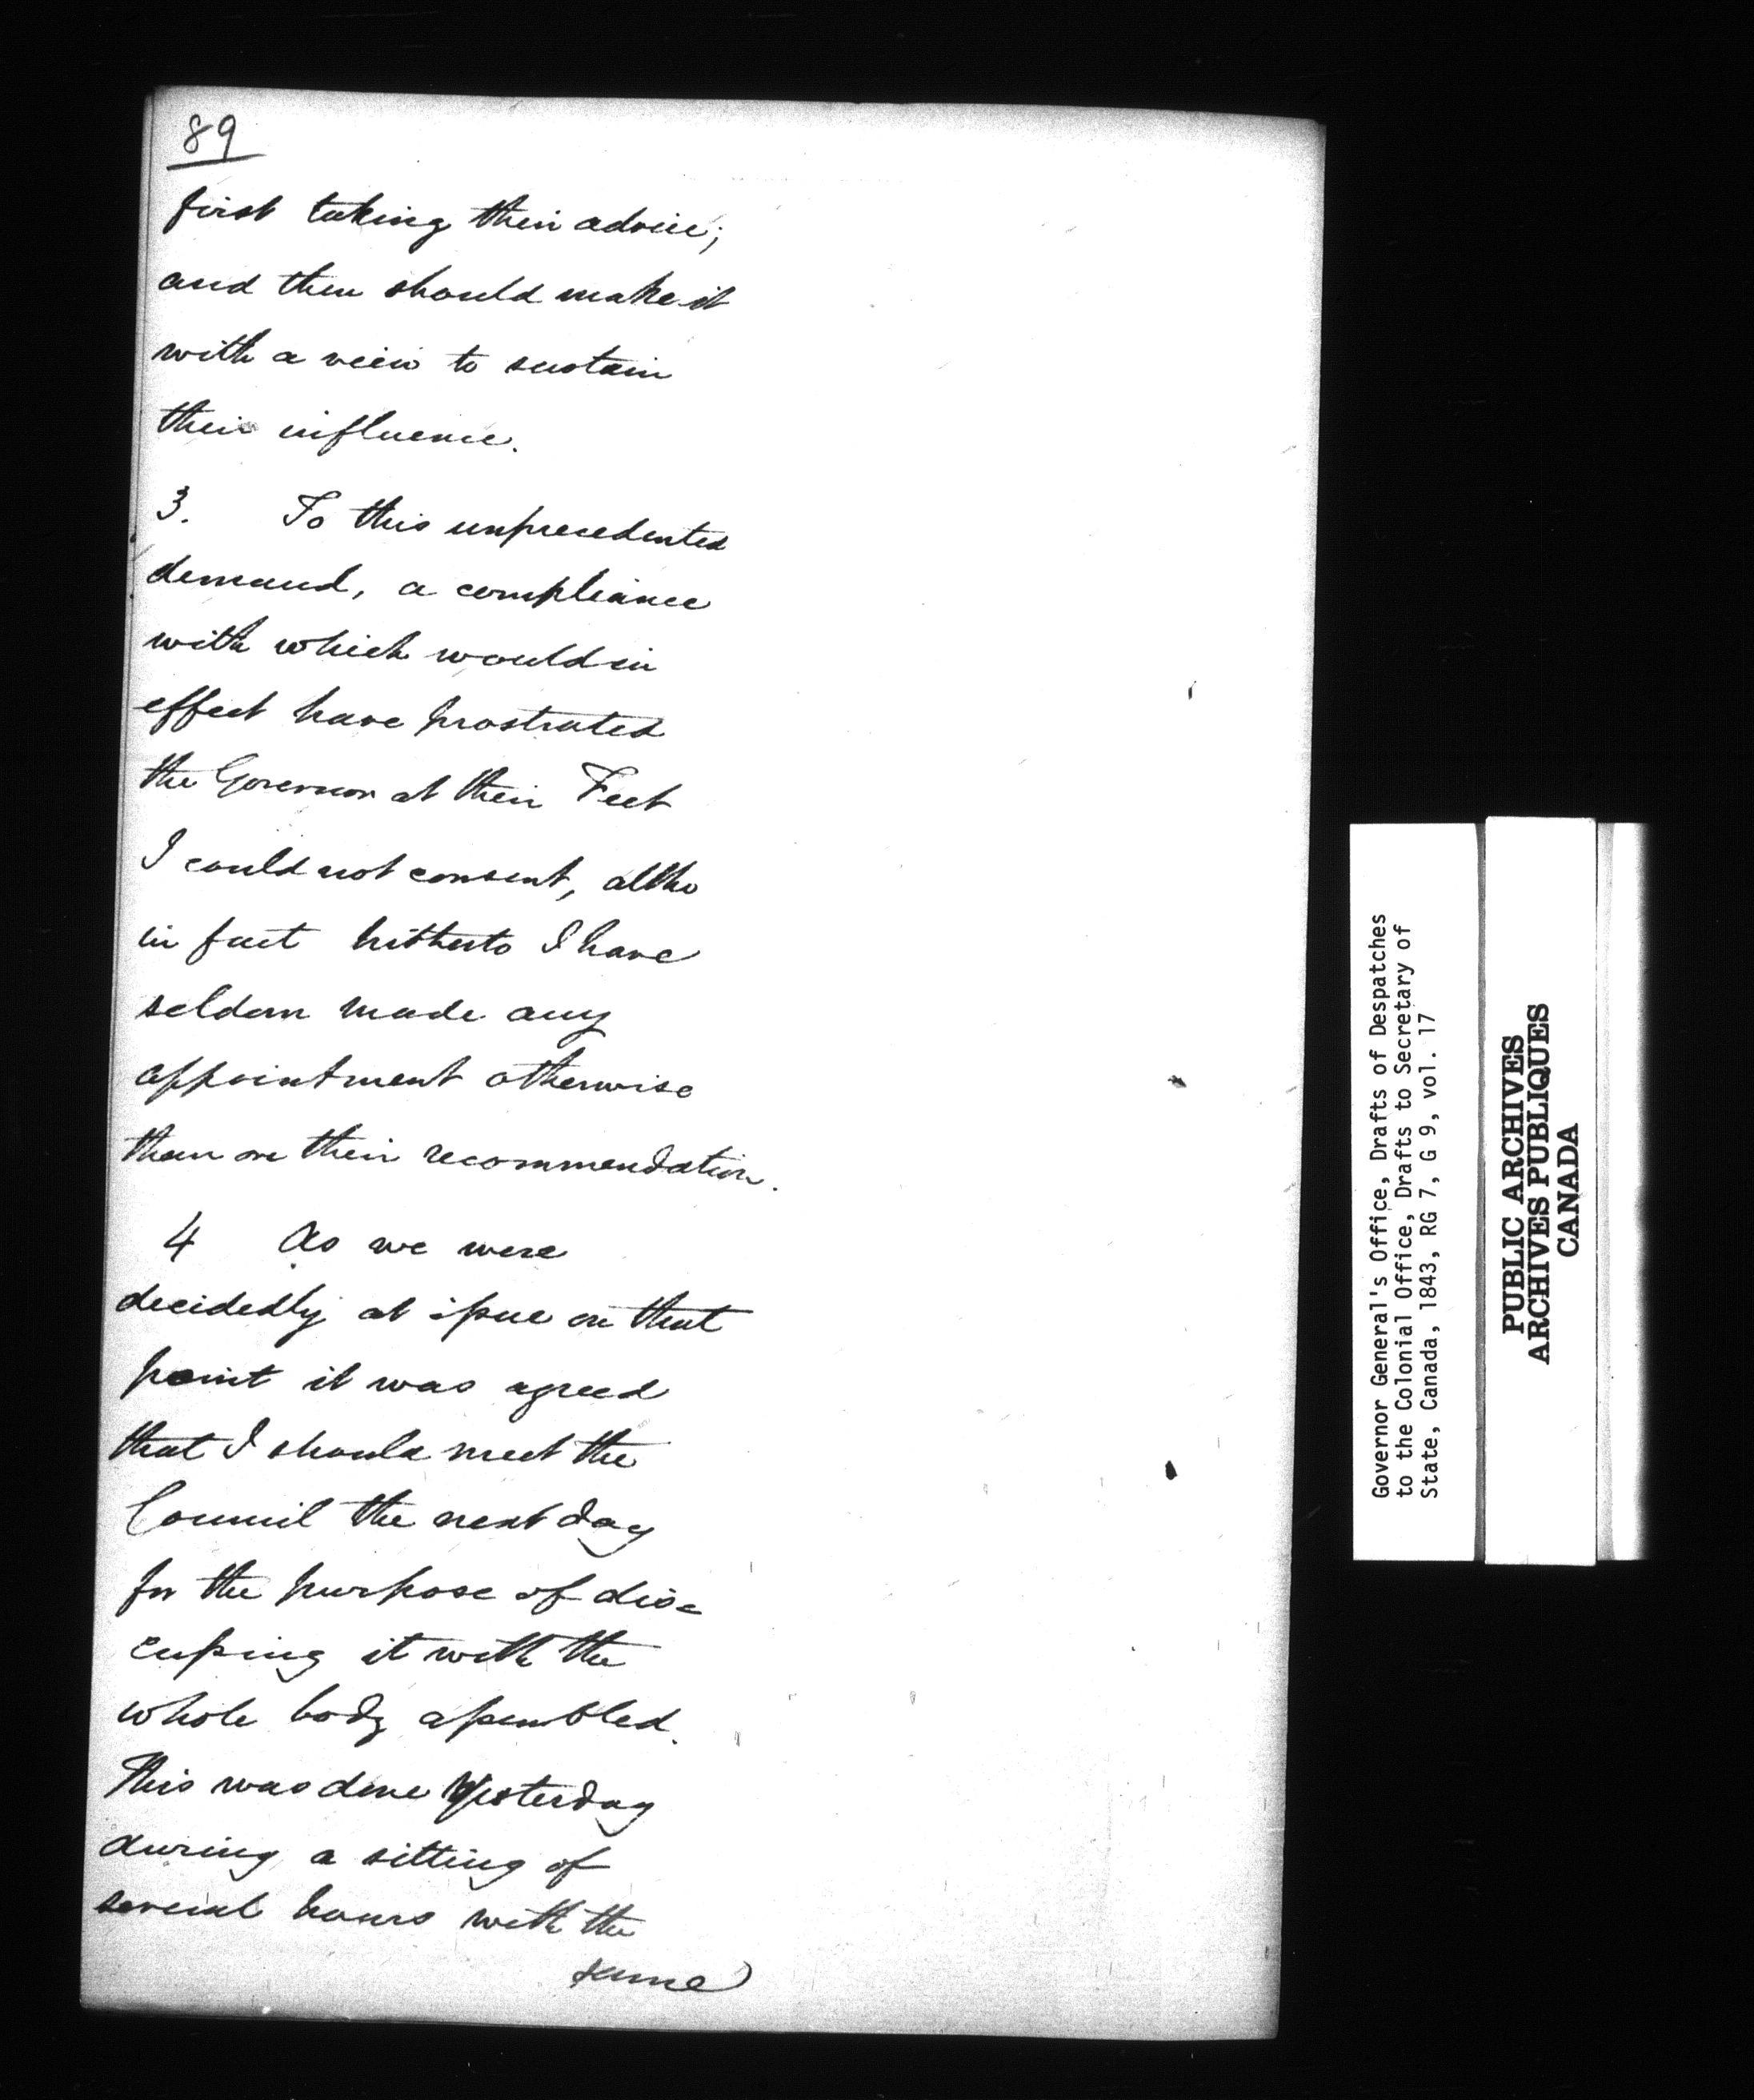 89
first taking their advice;
and then should make it
with a view to sustain
their influence.
3. To this unprecedented
demand, a compliance
with which would in
effect have prostrated
the Governor at their Feet
I could not consent, altho
in fact hitherto I have
seldom made any
appointment otherwise
than on their recommendation.
4 As we were
decidedly at issue on that
point it was agreed
that I should meet the
Council the next day
for the purpose of dis=
cussing it with the
whole body assembled.
This was done Yesterday
during a sitting of
several hours with the
same
Governor General's Office, Drafts of Despatches
to the Colonial Office, Drafts to Secretary of
State, Canada, 1843, RG 7, G 9, vol. 17
PUBLIC ARCHIVES
ARCHIVES PUBLIQUES
CANADA